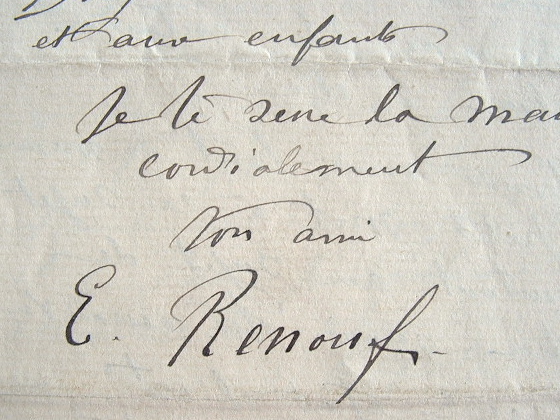 et aux enfants
Je te serre la main
cordialement
Ton ami
E. Renouf.